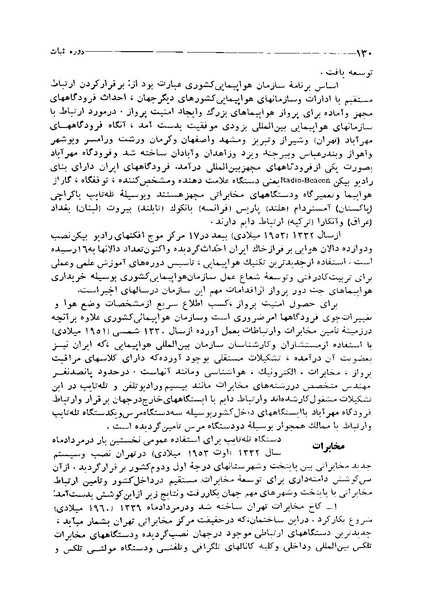 ۱۳۰ دوره ثبات
توسعه یافت .
اساس برنامهٔ سازمان هواپیمایی‌کشوری عبارت بود از: برقرارکردن ارتباط
مستقیم با ادارات وسازمانهای هواپیمایی‌کشورهای دیگرجهان ، احداث فرودگاههای
مجهز وآماده برای پرواز هواپیماهای بزرگ وایجاد امنیت پرواز . درمورد ارتباط با
سازمانهای هواپیمایی بین‌المللی بزودی موفقیت بدست آمد ، آنگاه فرودگاههای
مهرآباد (تهران) وشیراز وتبریز ومشهد واصفهان وکرمان ورشت ورامسر وبوشهر
واهواز وبندرعباس وبیرجند ویزد وزاهدان وآبادان ساخته شد وفرودگاه مهرآباد
بصورت یکی ازفرودگاههای مجهزبین‌المللی درآمد. فرودگاههای ایران دارای بنای
رادیو بیکن Radio-Beacon یعنی دستگاه علامت دهنده ومشخص‌کننده ، توقفگاه ، گاراژ
هواپیما وتعمیرگاه ودستگاههای مخابراتی مجهزهستند وبوسیلهٔ تله‌تایپ باکراچی
(پاکستان) آمستردام (هلند) پاریس (فرانسه) بانکوک (تایلند) بیروت (لبنان) بغداد
(عراق) وآنکارا (ترکیه) ارتباط دایم دارند .
ازسال ۱۳۳۲ (۱۹۵۳ میلادی) ببعد در۱۷ مرکز موج افکنهای رادیو بیکن‌نصب
ودوازده دالان هوایی برفرازخاک ایران احداث‌گردیده واکنون‌تعداد دالانها به۱۶رسیده
است . استفاده ازجدیدترین تکنیک هواپیمایی، تأسیس دوره‌های آموزش علمی وعملی
برای تربیت‌کادرفنی وتوسعهٔ شعاع عمل سازمان‌هواپیمایی‌کشوری بوسیله خریداری
هواپیماهای جت دور پرواز ازاقدامات مهم این سازمان درسالهای اخیراست.
برای حصول امنیت پرواز ،کسب اطلاع سریع ازمشخصات وضع هوا و
تغییرات‌جوی فرودگاهها امرضروری است وسازمان هواپیمایی‌کشوری علاوه برآنچه
درزمینهٔ تأمین مخابرات وارتباطات بعمل آورده ازسال ۱۳۳۰ شمسی (۱۹۵۱ میلادی)
با استفاده ازمستشاران وکارشناسان سازمان بین‌المللی هواپیمایی ،که ایران نیز
بعضویت آن درآمده ، تشکیلات مستقلی بوجود آورده‌که دارای کلاسهای مراقبت
پرواز ، مخابرات . الکترونیک ، هواشناسی ومانند آنهاست . درحدود پانصدنفر
مهندس متخصص دررشته‌های مخابرات مانند بیسیم ورادیوتلفن و تله‌تایپ در این
تشکیلات مشغول‌کارشده‌اند وارتباط دایم با ایستگاههای‌خارج‌درجهان برقرار وارتباط
فرودگاه مهرآباد باایستگاههای داخل‌کشوربوسیله سه‌دستگاه‌مرس‌ویکدستگاه تله‌تایپ
وارتباط با ممالک همجوار بوسیلهٔ دودستگاه مرس تأمین‌گردیده است .
مخابرات
دستگاه تله‌تایپ برای استفاده عمومی نخستین بار درمردادماه
سال ۱۳۳۲ (اوت ۱۹۵۳ میلادی) درتهران نصب وسیستم
جدید مخابراتی بین پایتخت وشهرستانهای درجهٔ اول ودوم‌کشور برقرارگردید . ازآن
پس‌کوشش دامنه‌داری برای توسعهٔ مخابرات مستقیم درداخل‌کشور وتأمین ارتباط
مخابراتی با پایتخت وشهرهای مهم جهان بکاررفت ونتایج زیر ازاین‌کوشش بدست‌آمد:
۱ــ کاخ مخابرات تهران ساخته شد ودرمردادماه ۱۳۳۹ (۱۹۶۰ میلادی)
شروع بکارکرد . دراین ساختمان،که درحقیقت مرکز مخابراتی تهران بشمار میآید ،
جدیدترین دستگاههای ارتباطی موجود درجهان نصب‌گردیده ودستگاههای مخابرات
تلکس بین‌المللی وداخلی وکلیه کانالهای تلگرافی وتلفنی ودستگاه مولتی تلکس و